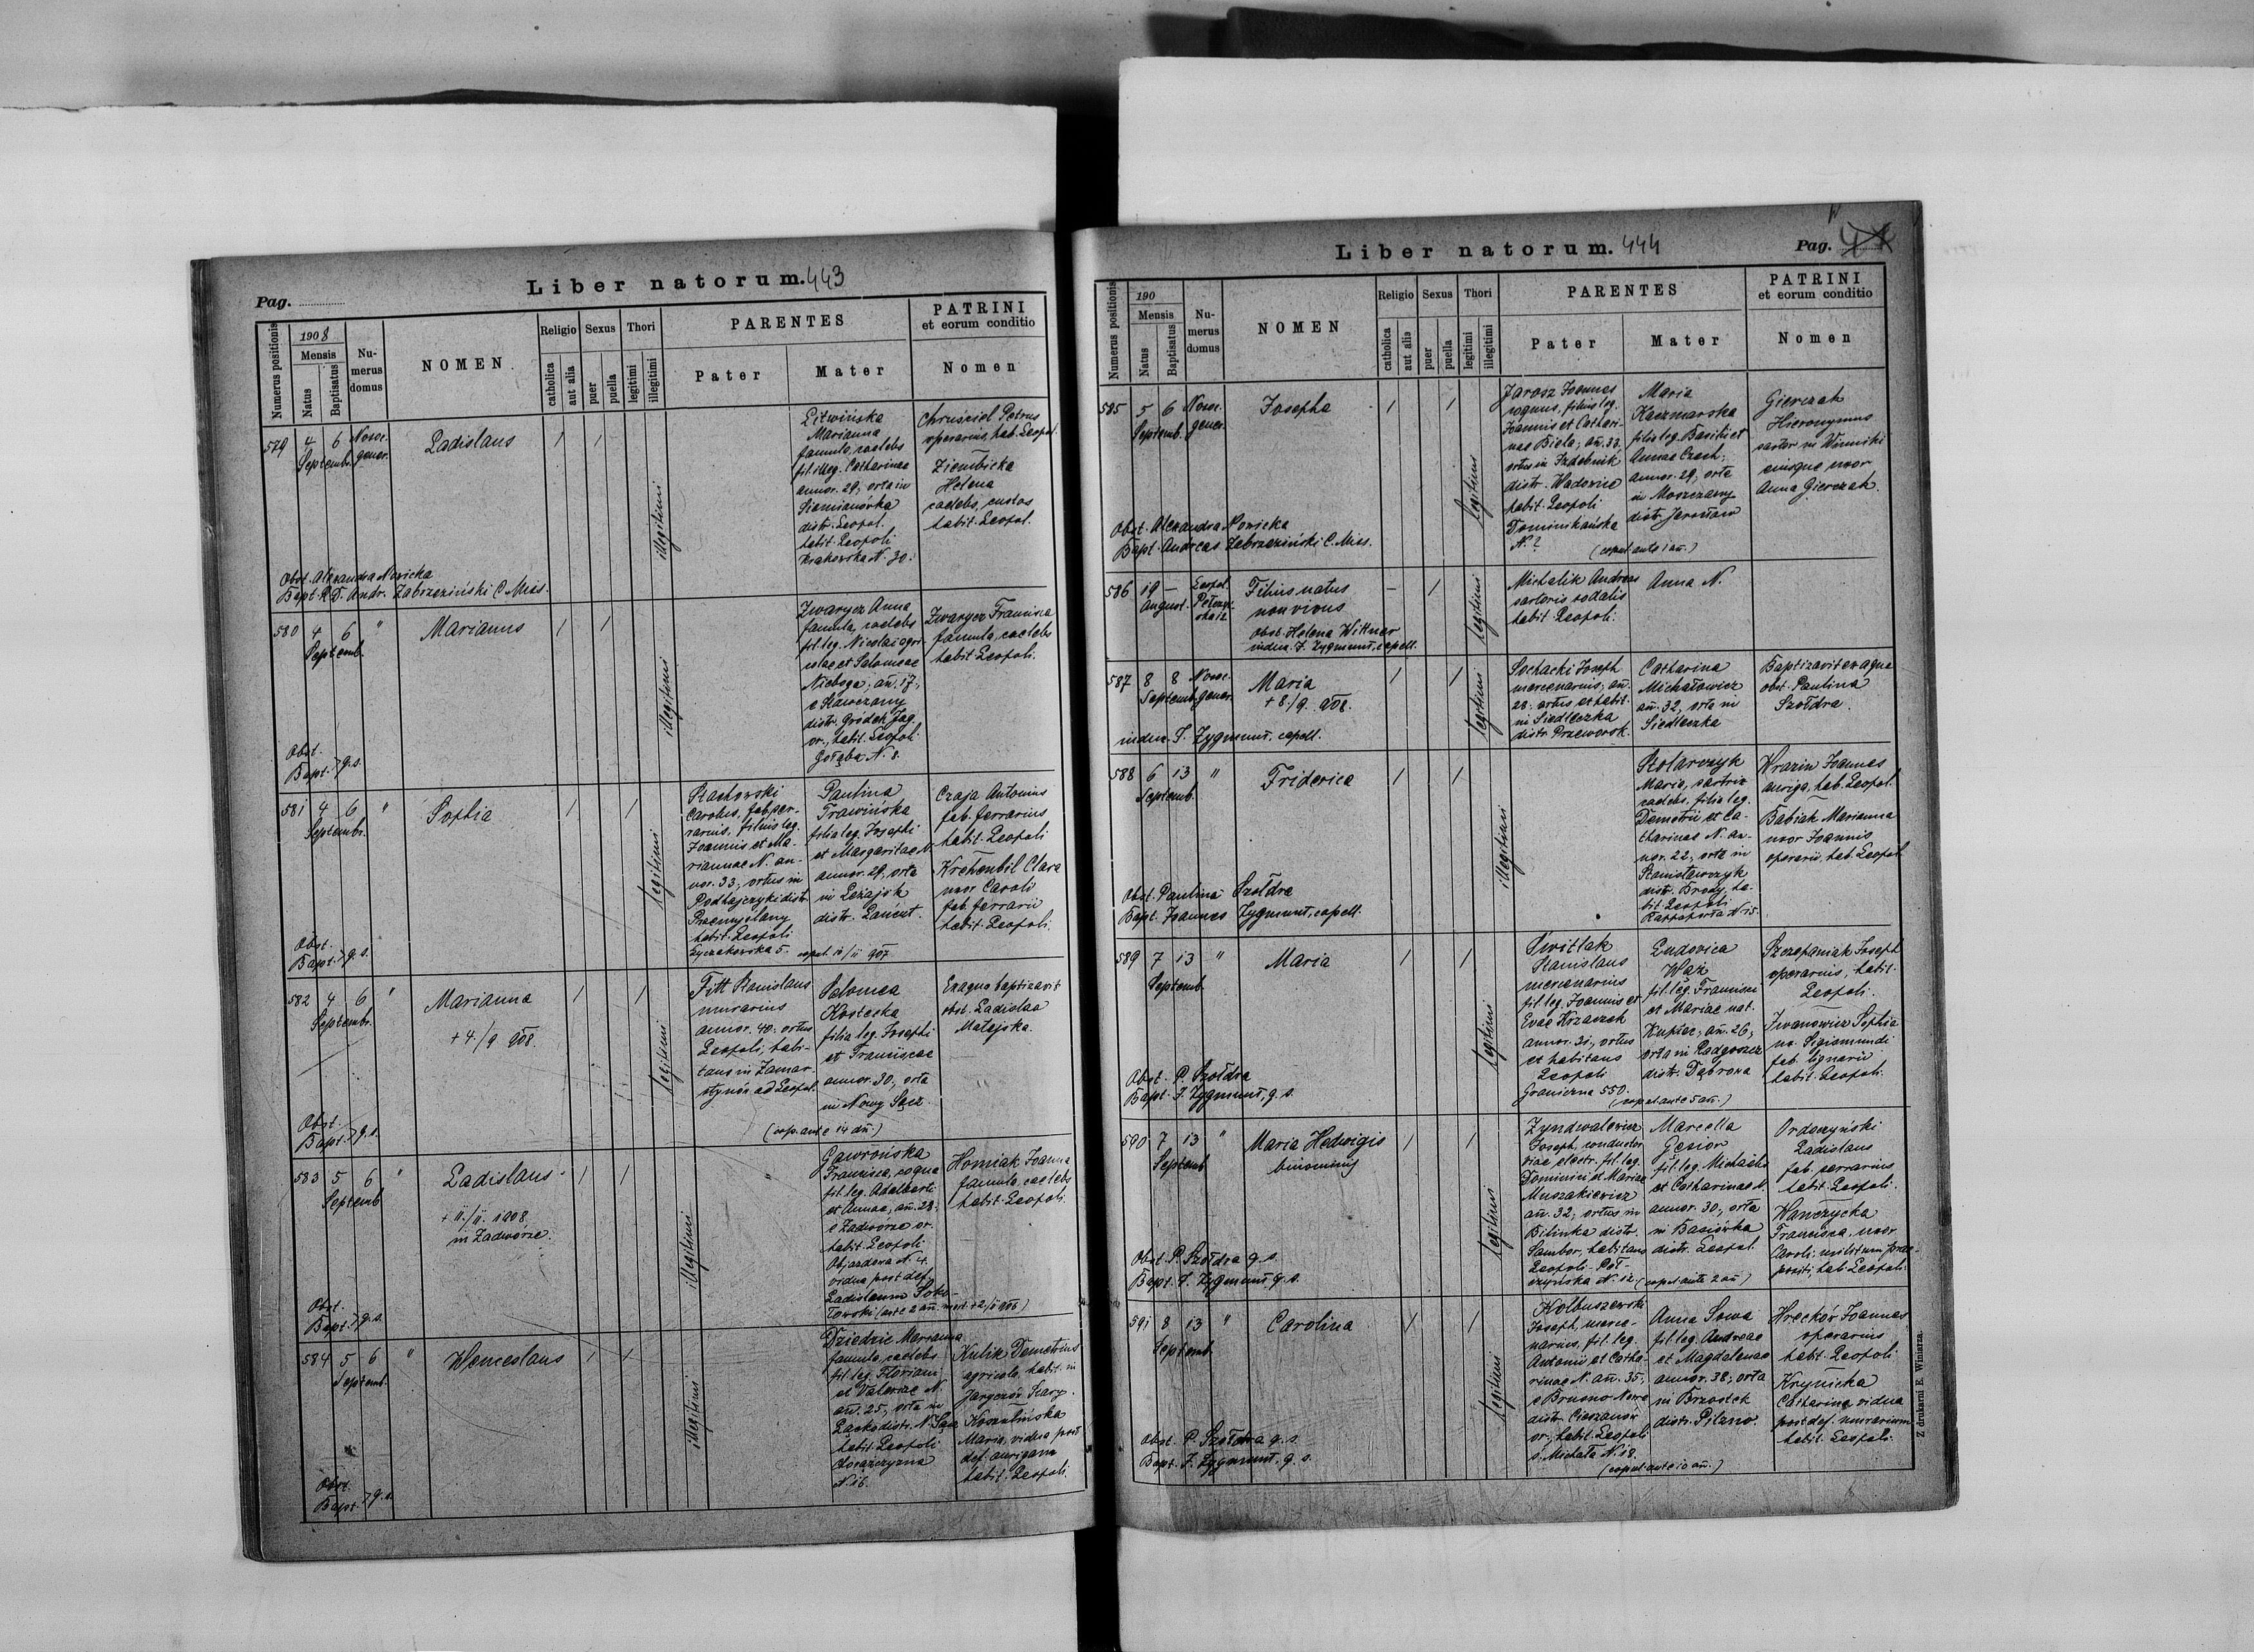 Liber natorum. 443
Pag.
Numerus positionis
1908
Mensis
Natus
Baptisatus
Nu-
merus
domus
NOMEN
Religio
catholica
aut alia
Sexus
puer
puella
Thori
legitimi
illegitimi
PARENTES
Pater
Mater
PATRINI
et eorum conditio
Nomen
579
4 6
Septembr.
Nosoc.
gener.
Ladislaus
illegitimi
Litwińska
Marianna
famula, caelebs
fil. illeg. Catharinae
annor. 29, orta in
Siemianówka
distr. Leopol.
habit. Leopoli
Krakowska N. 30.
Chruściel Petrus
operarius, hab. Leopol.
Ziembicka
Helena
caelebs, custos
habit. Leopol.
Obst. Alexandra Nowicka
Bapt. R. D. Andr. Zabrzeziński C. Miss.
580
4 6 "
Septemb.
Marianus
illegitimi
Zwarycz Anna
famula, caelebs
fil. leg. Nicolai agri-
colae et Salomeae
Nieboga, añ. 17,
e Stawczany
distr. Gródek Jag.
or., habit. Leopoli
Gołąba N. 8.
Zwarycz Francisca
famula, caelebs
habit. Leopoli.
Obst.
Bapt. > q. s.
581
4 6 "
Septembr.
Sophia
legitimi
Stachowski
Carolus, fab. fer-
rarius, filius leg.
Joannis et Ma-
riannae N. an-
nor. 33, ortus in
Podhajczyki distr.
Przemyślany
habit. Leopoli
Łyczakowska 5.
Paulina
Trawińska
filia leg. Josephi
et Margaritae N.
annor. 29, orta
in Leżajsk
distr. Łańcut.
copul. 10/11 907.
Czaja Antonius
fab. ferrarius
habit. Leopoli
Krehenbil Clara
uxor Caroli
fab. ferrarii
habit. Leopoli.
Obst.
Bapt. > q. s.
582
4 6 "
Septembr.
Marianna
+ 4./9 908.
legitimi
Fitt Stanislaus
murarius
annor. 40. ortus
Leopoli, habi-
tans in Zamar-
stynów ad Leopol.
Salomea
Kostecka
filia leg. Josephi
et Franciscae
annor. 30, orta
in Nowy Sącz.
(cop. ante 14 añ.)
Ex aqua baptizavit
obst. Ladislaa
Matejska.
Obst.
Bapt. > q. s.
583
5 6 "
Septemb.
Ladislaus
+ 11./11. 1908
in Zadwórze.
illegitimi
Gawrońska
Francisca, coqua
fil. leg. Adalberti
et Annae, añ. 28.
e Zadwórze or.
habit. Leopoli
Objazdowa N. 4.
vidua post def.
Ladislaum Soko-
łowski (ante 2 añ. mort. +2/8 906)
Homiak Joanna
famula, caelebs
habit. Leopoli.
Obst.
Bapt. > q. s.
584
5 6 "
Septemb.
Wenceslaus
illegitimi
Dziedzic Marianna
famula, caelebs
fil. leg. Floriani
et Valeriae N.
añ. 25, orta in
Łącko distr. N. Sącz
habit. Leopoli
Torażczyzna
N. 16.
Kulik Demetrius
agricola, habit. in
Jaryczów Stary.
Koszulińska
Maria, vidua post
def. aurigam
habit. Leopoli.
Obst.
Bapt. > q. s.
Liber natorum. 444
Pag.
Numerus positionis
190
Mensis
Natus
Baptisatus
Nu-
merus
domus
NOMEN
Religio
catholica
aut alia
Sexus
puer
puella
Thori
legitimi
illegitimi
PARENTES
Pater
Mater
PATRINI
et eorum conditio
Nomen
585
5 6
Septemb.
Nosoc.
gener.
Josepha
legitimi
Jarosz Joannes
coquus, filius leg.
Joannis et Cathari-
nae Biela, añ. 33.
ortus in Izdebnik
distr. Wadowice
habit. Leopoli
Dominikańska
N. ?
Maria
Kaczmarska
filia leg. Basilii et
Annae Czech,
annor. 29, orta
in Moszczany
distr. Jarosław
(copul. ante 1 añ.)
Gierczak
Hieronymus
sartor in Winniki
eiusque uxor
Anna Gierczak.
Obst. Alexandra Nowicka
Bapt. Andreas Zabrzeziński C. Miss.
586
19 —
August.
Leopol.
Pełczyń-
ska 12.
Filius natus
non vivus
Obst. Helena Wittner
index. J. Zygmunt, capell.
legitimi
Michalik Andreas
sartoris sodalis
habit Leopoli.
Anna N.
587
8 8
Septemb.
Nosoc.
gener.
Maria
+ 8./9. 908.
legitimi
Sochacki Joseph
mercenarius, añ.
28. ortus et habit.
in Siedleczka
distr. Przeworsk.
Catharina
Michałowicz
añ. 32, orta in
Siedleczka
Baptizavit ex aqua
obst. Paulina
Szołdra.
index. J. Zygmunt, capell.
588
6 13 "
Septemb.
Friderica
illegitimi
Stolarczyk
Maria, sartrix
caelebs, filia leg.
Demetrii et Ca-
tharinae N. an-
nor. 22, orta in
Stanisławczyk
distr. Brody, ha-
bit. Leopoli
Rappaporta N. 15.
Wrazin Joannes
auriga, hab. Leopol.
Babiak Marianna
uxor Joannis
operarii, hab. Leopol.
Obst. Paulina Szołdra
Bapt. Joannes Zygmunt, capell.
589
7 13 "
Septemb.
Maria
legitimi
Świtlak
Stanislaus
mercenarius
fil. leg. Joannis et
Evae Krzaczek
annor. 31, ortus
et habitans
Leopoli
Graniczna 550.
Ludovica
Wąż
fil. leg. Francisci
et Mariae nat.
Kupiec, añ. 26,
orta in Radgoszcz
distr. Dąbrowa
(copul. ante 5 añ.)
Szczepaniak Joseph
operarius, habit.
Leopoli.
Iwanowicz Sophia
ux. Sigismundi
fab. lignarii
habit. Leopoli.
Obst. P. Szołdra
Bapt. J. Zygmunt, q. s.
590
7 13 "
Septemb.
Maria Hedwigis
binominis
legitimi
Zyndwalewicz
Joseph, conductor
viae electr. fil. leg.
Dominici et Mariae
Muszakiewicz
añ. 32, ortus in
Bilinka distr.
Sambor, habitans
Leopoli Peł-
czyńska N. 12.
Marcella
Gęsior
fil. leg. Michaelis
et Catharinae N.
annor. 30, orta
in Basiówka
distr. Leopol.
(copul. ante 2 añ.)
Ordczyński
Ladislaus
fab. ferrarius
habit. Leopoli.
Wanczycka
Francisca, uxor
Caroli, militum prae-
positi, hab. Leopoli.
Obst. P. Szołdra q. s.
Bapt. J. Zygmunt q. s.
591
8 13 "
Septemb.
Carolina
legitimi
Kolbuszewski
Joseph, merce-
narius, fil. leg.
Antonii et Catha-
rinae N. añ. 35,
e Brusno Nowe
distr. Cieszanów
or., habit. Leopoli
s. Michała N. 18.
Anna Sowa
fil. leg. Andreae
et Magdalenae
annor. 38, orta
in Brzostek
distr. Pilzno.
(copul. ante 10 añ.)
Hreckór Joannes
operarius
habit. Leopoli
Krynicka
Catharina vidua
post def. murarium
habit. Leopoli.
Obst. P. Szołdra q. s.
Bapt. J. Zygmunt, q. s.
Z drukarni E. Winiarza.